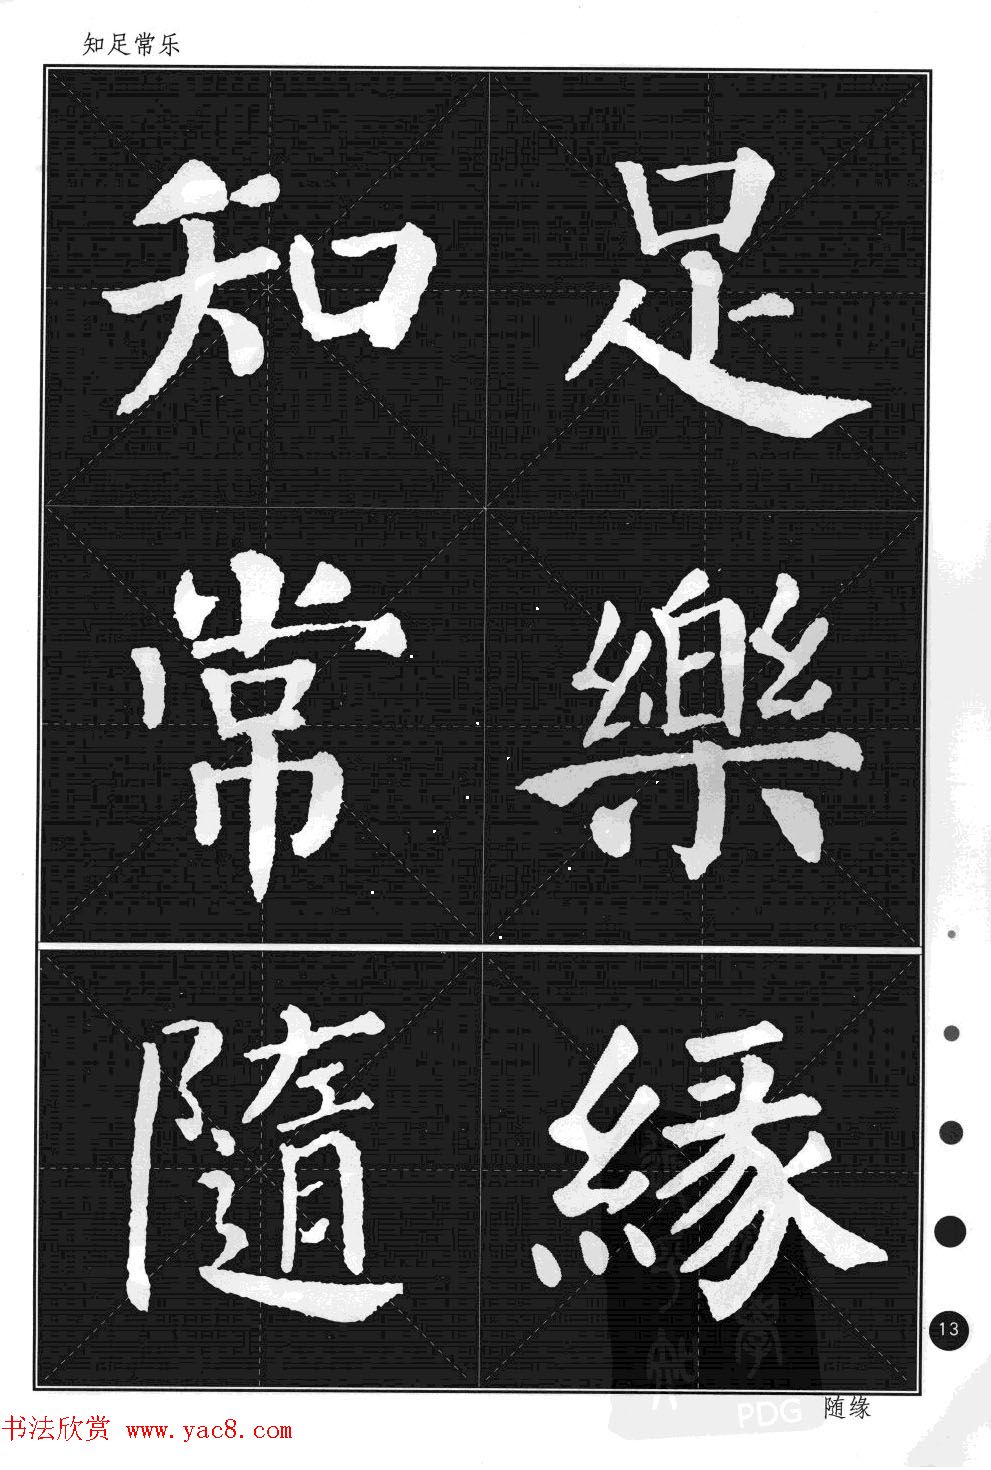 知足常乐
知足
常樂
隨緣
13
随缘
PDG
书法欣赏 www.yac8.com